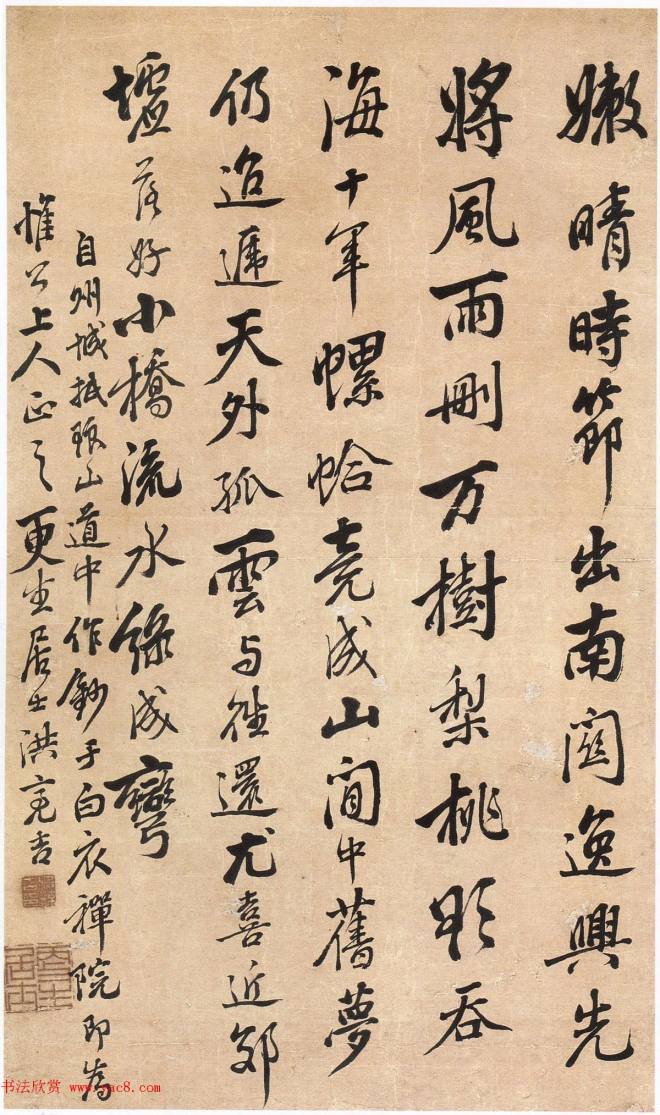 嫩晴時節出南關逸興先
將風雨刪万樹梨桃欲吞
海十年螺蛤竟成山閒中舊夢
仍迢遞天外孤雲与往還尤喜近郊
墟落好小橋流水綠成彎
自州城抵琅山道中作鈔于白衣禪院即為
惟公上人正之更生居士洪亮吉
更生居士
书法欣赏 www.yac8.com